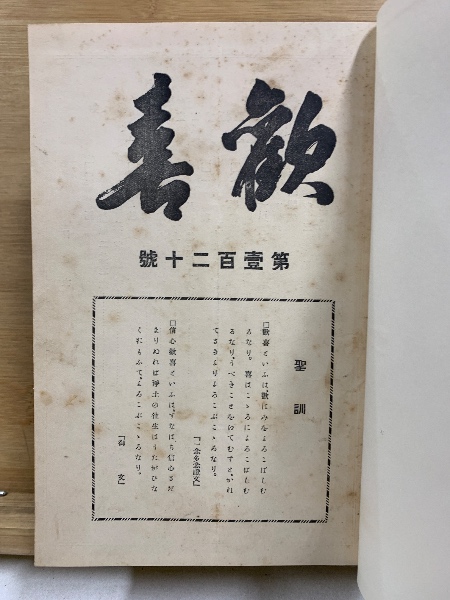 歡喜
第壹百二十號
聖訓
□歡喜といふは、歡はみをよろこばしむ
るなり。喜はこゝろによろこばしむ
るなり、うべきことをえてむずと、かね
てさきよりよろこぶこゝろなり。
『一念多念證文』
□信心歡喜といふは、すなはち信心さだ
まりぬれば淨土の往生はうたがひな
くおもふてよろこぶこゝろなり。